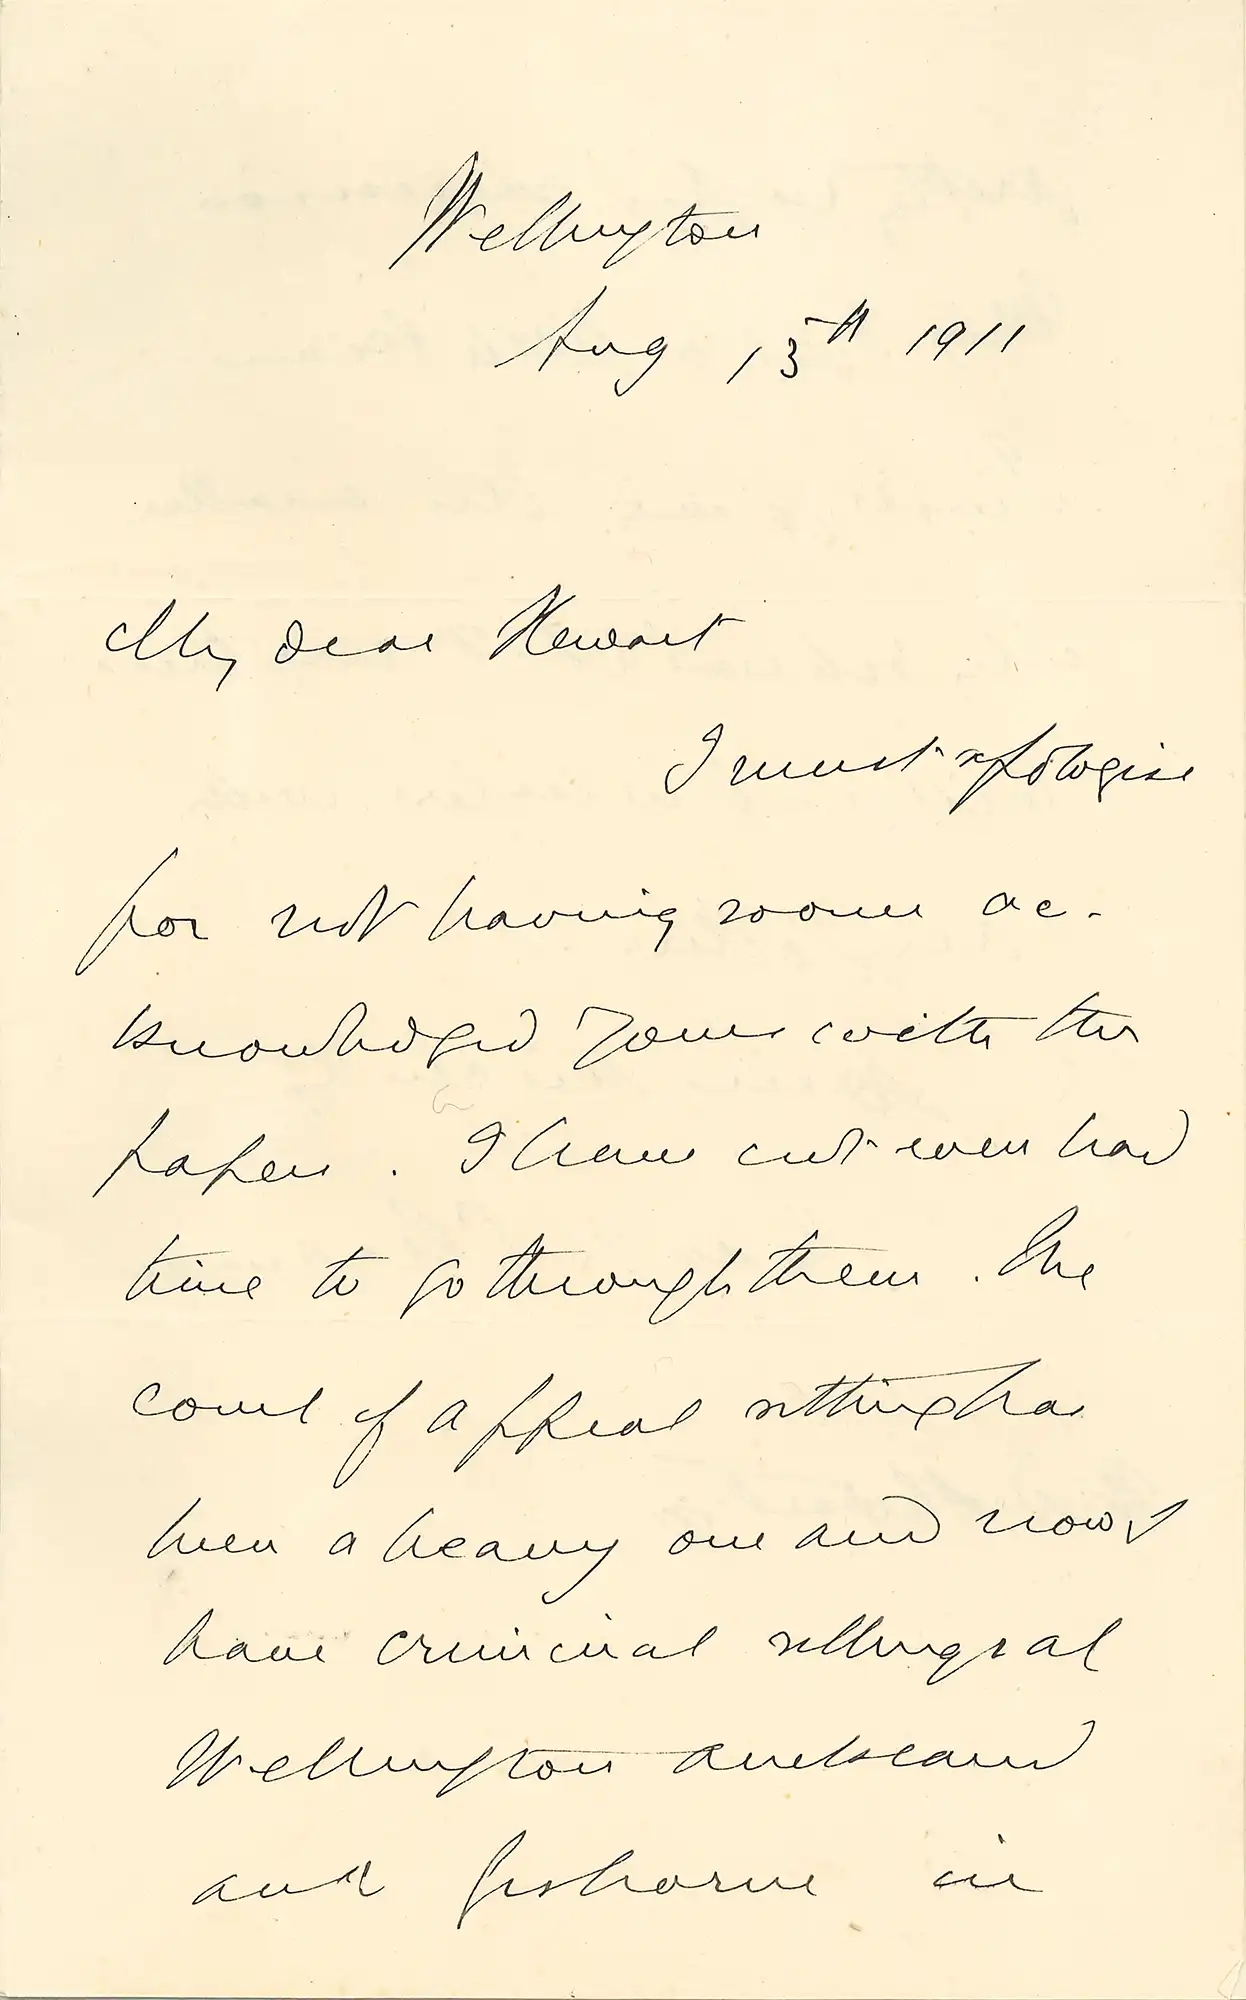 Wellington
Aug 15th 1911
My dear Stewart
I must apologise
for not having sooner ac-
knowledged yours with the
papers. I have not even had
time to go through them. The
court of appeal sitting has
been a heavy one and now I
have criminal sittings at
Wellington Auckland
and Gisborne in